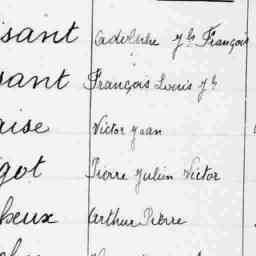 isant Adolphe Yls François
sant François Louis Yh
aise Victor Jean
got Pierre Julien Victor
heux Arthur Pierre